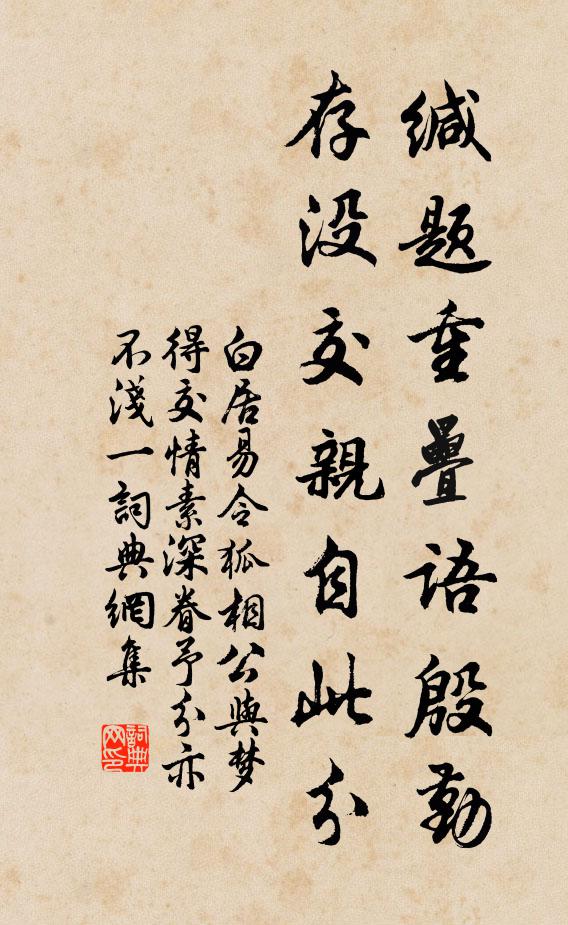 缄题重疊语殷勤
存没交親自此分
白居易令狐相公與梦
得交情素深眷予分亦
不淺一詞典網集
詞典
网印